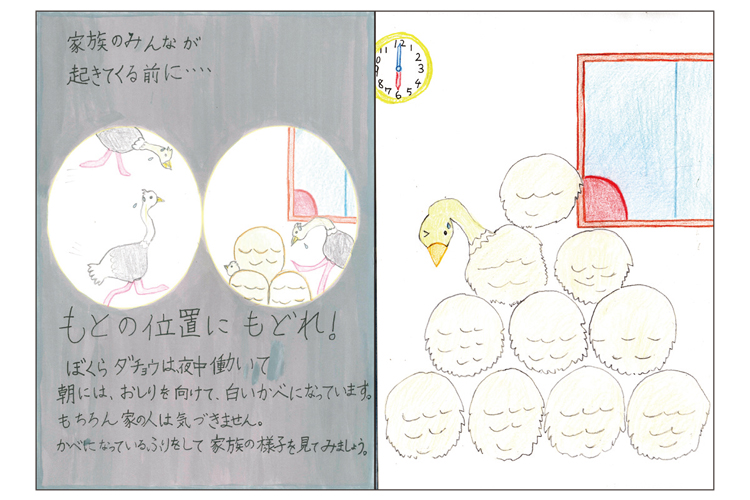 家族のみんなが
起きてくる前に‥‥
もとの位置に もどれ!
ぼくら ダチョウは夜中働いて
朝には、おしりを向けて、白いかべになっています。
もちろん 家の人は気づきません。
かべになっているふりをして 家族の様子を見てみましょう。
12
1
2
3
4
5
6
7
8
9
10
11